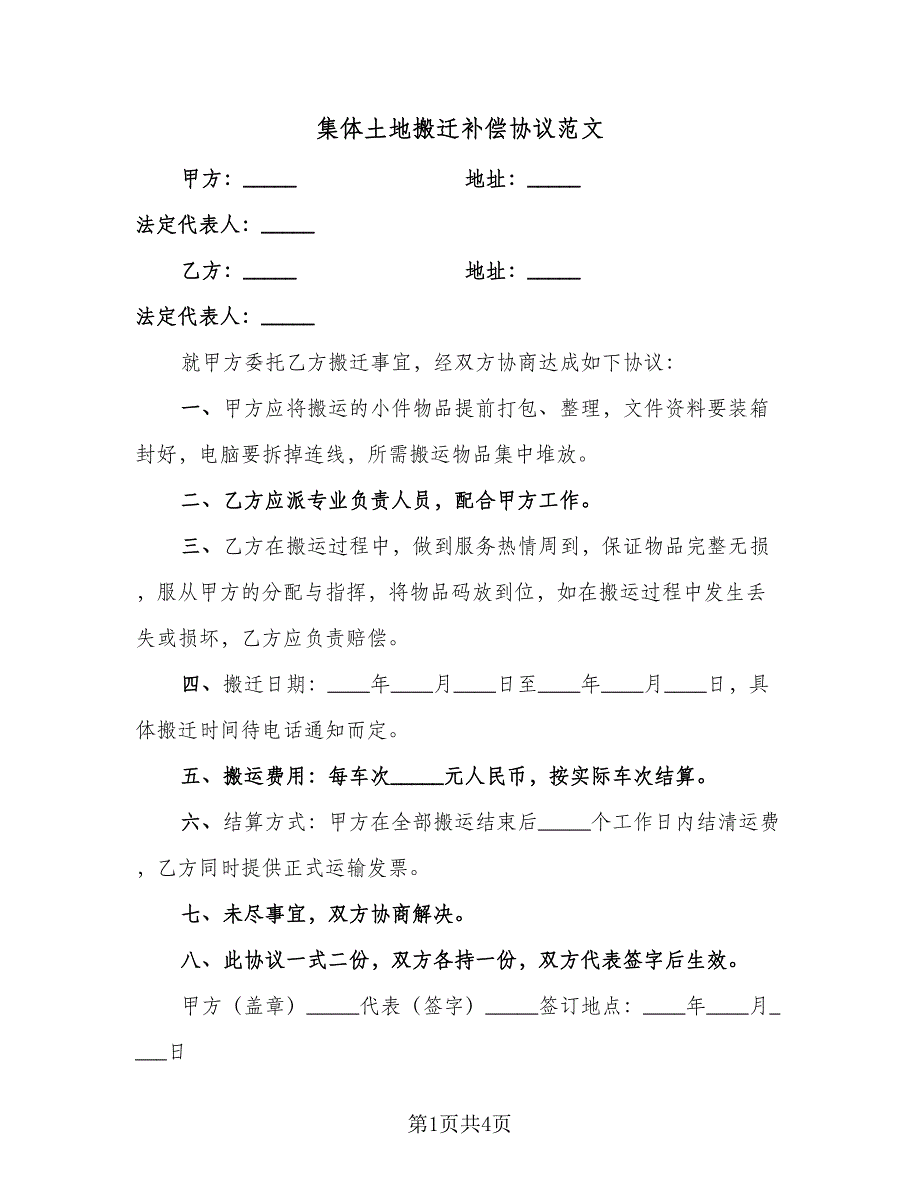 集体土地搬迁补偿协议范文
甲方：_____ 地址：_____
法定代表人：_____
乙方：_____ 地址：_____
法定代表人：_____
就甲方委托乙方搬迁事宜，经双方协商达成如下协议：
一、甲方应将搬运的小件物品提前打包、整理，文件资料要装箱
封好，电脑要拆掉连线，所需搬运物品集中堆放。
二、乙方应派专业负责人员，配合甲方工作。
三、乙方在搬运过程中，做到服务热情周到，保证物品完整无损
，服从甲方的分配与指挥，将物品码放到位，如在搬运过程中发生丢
失或损坏，乙方应负责赔偿。
四、搬迁日期：____年____月____日至____年____月____日，具
体搬迁时间待电话通知而定。
五、搬运费用：每车次_____元人民币，按实际车次结算。
六、结算方式：甲方在全部搬运结束后_____个工作日内结清运费
，乙方同时提供正式运输发票。
七、未尽事宜，双方协商解决。
八、此协议一式二份，双方各持一份，双方代表签字后生效。
甲方（盖章）_____代表（签字）_____签订地点：____年____月_
___日
第1页共4页